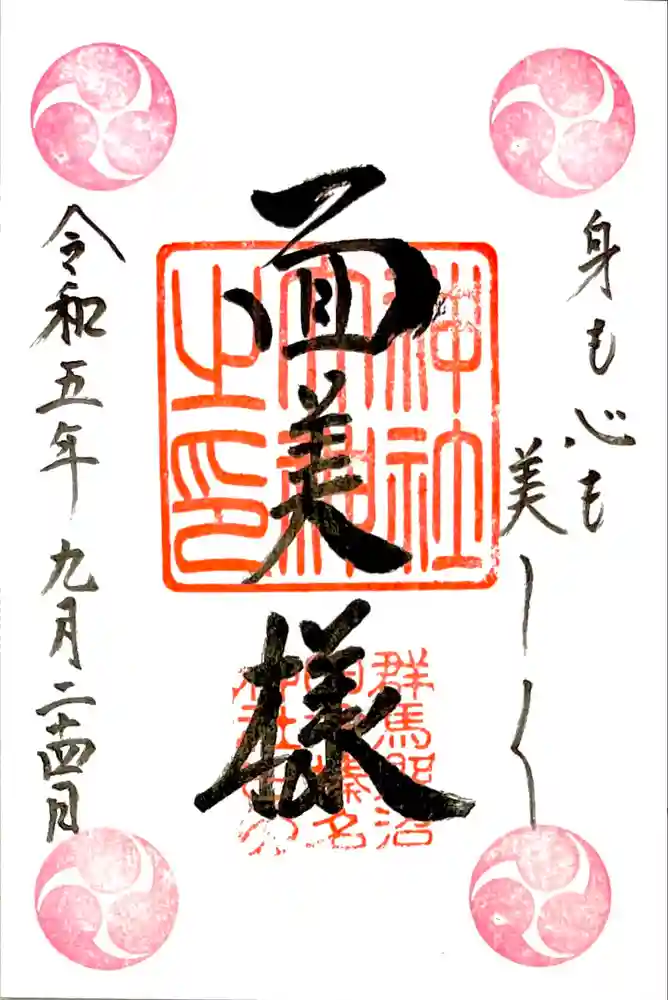 身も心も
美しく
面美様
神社
之印
群馬
榛名
令和五年九月二十四日